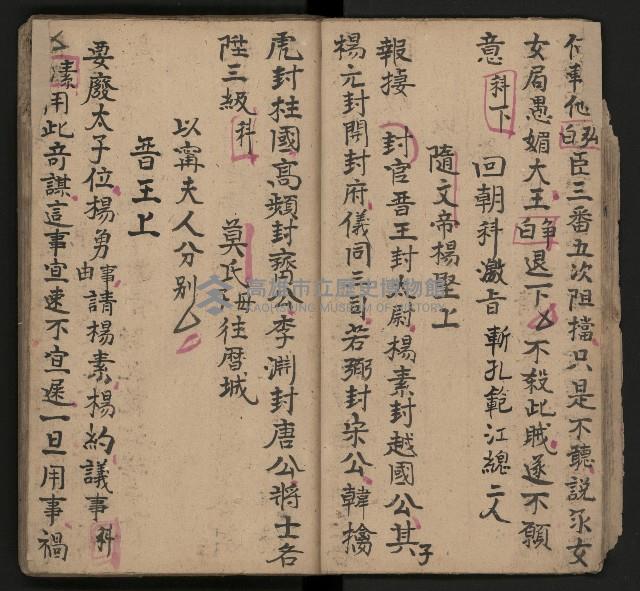 臣三番五次阻擋只是不聽説承女
女局愚媚大王爭白退一下厶不殺此賊遂不願
意科下 回朝科激旨斬孔範江總二人
隨文帝楊堅上
報捷 封官晋王封太尉楊素封越國公其子
楊元封開封府儀同三司若弼封宋公韓擒
虎封柱國高頻封齊公李淵封唐公將士各
陞三級科 莫氏母往曆城
以甯夫人分別厶
晋王上
要廢太子位楊勇由事請楊素楊約議事科
厶素用此奇謀這事宜速不宜遲一旦用事禍
高雄市立歷史博物館
KAOHSIUNG MUSEUM OF HISTORY